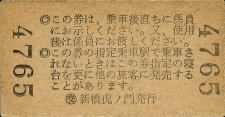 4765
◎この券は、乗車後直ちに係員
にお示しください。又、使用
後は係員にお渡しください。
◎この券の指定乗車駅で乗車さ
れないときはこの券指定の寝
台を更に他の旅客に発売する
ことがあります。
新橋虎ノ門発行
4765